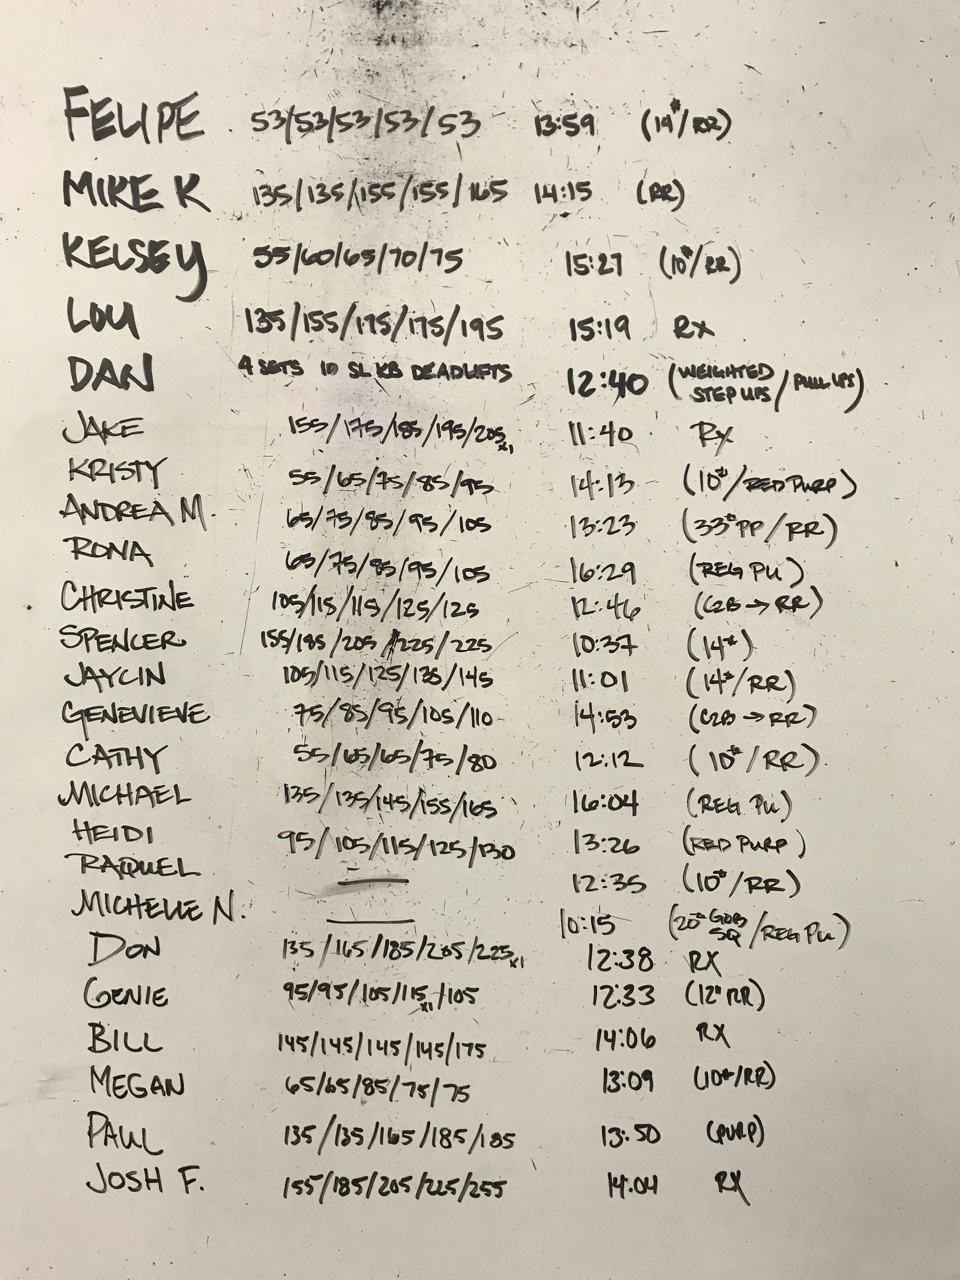 FELIPE 53/53/53/53/53 13:59 (14#/RR)
MIKE K 135/135/155/155/165 14:15 (RR)
KELSEY 55/60/65/70/75 15:27 (10#/RR)
LOU 135/155/175/175/195 15:19 RX
DAN 4 SETS 10 SL KB DEADLIFTS 12:40 (WEIGHTED STEP UPS/PULL UPS)
JAKE 155/175/185/195/205x1 11:40 RX
KRISTY 55/65/75/85/95 14:13 (10#/RED PURP)
ANDREA M. 65/75/85/95/105 13:23 (33#PP/RR)
RONA 65/75/85/95/105 16:29 (REG PU)
CHRISTINE 105/115/115/125/125 12:46 (C2B → RR)
SPENCER 155/185/205/225/225 10:37 (14#)
JAYCIN 105/115/125/135/145 11:01 (14#/RR)
GENEVIEVE 75/85/95/105/110 14:53 (C2B → RR)
CATHY 55/65/65/75/80 12:12 (10#/RR)
MICHAEL 135/135/145/155/165 16:04 (REG PU)
HEIDI 95/105/115/125/130 13:26 (RED PURP)
RAQUEL — 12:35 (10#/RR)
MICHELLE N. — 10:15 (20# GOB SQ/REG PU)
DON 135/165/185/205/225x1 12:38 RX
GENIE 95/95/105/115x1/105 12:33 (12# RR)
BILL 145/145/145/145/175 14:06 RX
MEGAN 65/65/85/75/75 13:09 (10#/RR)
PAUL 135/135/165/185/185 13:50 (PURP)
JOSH F. 155/185/205/225/255 14:04 RX